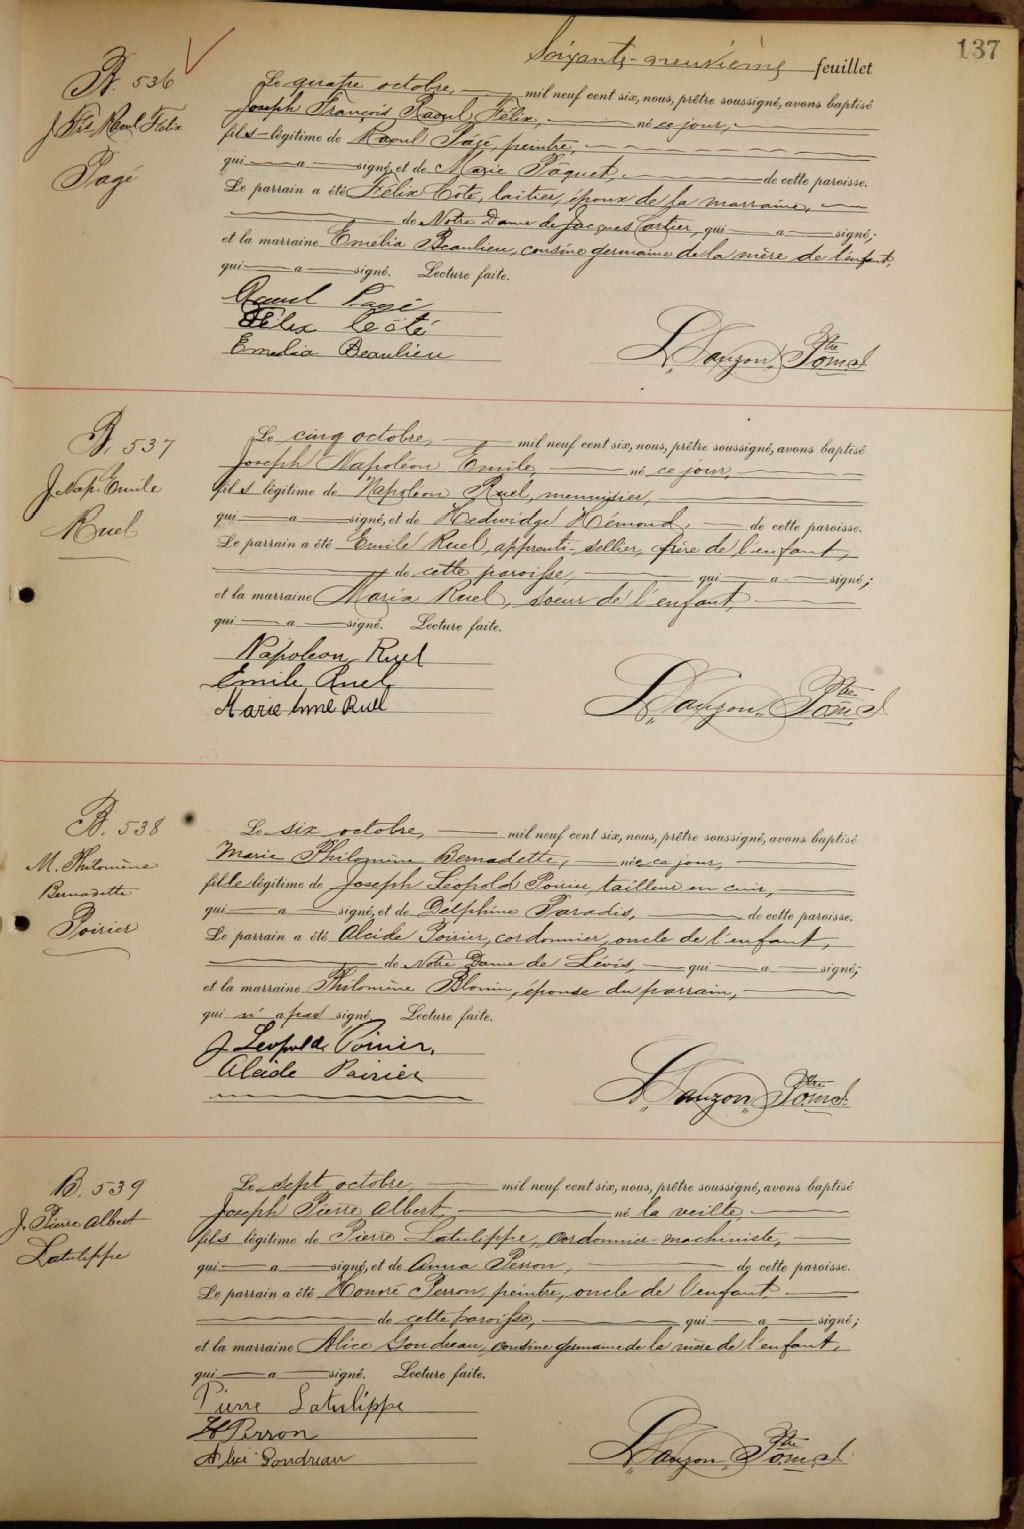 Soixante-neuvième feuillet
137
B. 536
J. Frs Raoul Félix
Pagé
Le quatre octobre, mil neuf cent six, nous, prêtre soussigné, avons baptisé
Joseph François Raoul Félix, né ce jour,
fils légitime de Raoul Pagé, peintre,
qui a signé, et de Marie Pâquet, de cette paroisse.
Le parrain a été Félix Côté, laitier, époux de la marraine,
de Notre Dame de Jacques Cartier, qui a signé;
et la marraine Emélia Beaulieu, cousine germaine de la mère de l'enfant,
qui a signé. Lecture faite.
Raoul Pagé
Félix Côté
Emelia Beaulieu
Lauzon, Ptre
B. 537
J. Nap. Emile
Ruel
Le cinq octobre, mil neuf cent six, nous, prêtre soussigné, avons baptisé
Joseph Napoléon Emile, né ce jour,
fils légitime de Napoléon Ruel, menuisier,
qui a signé, et de Hedwidge Hémond, de cette paroisse.
Le parrain a été Emile Ruel, apprenti-sellier, frère de l'enfant,
de cette paroisse, qui a signé;
et la marraine Maria Ruel, soeur de l'enfant,
qui a signé. Lecture faite.
Napoleon Ruel
Emile Ruel
Marie Anne Ruel
Lauzon, Ptre
B. 538
M. Philomène
Bernadette
Poirier
Le six octobre, mil neuf cent six, nous, prêtre soussigné, avons baptisé
Marie Philomène Bernadette, née ce jour,
fille légitime de Joseph Léopold Poirier, tailleur en cuir,
qui a signé, et de Délphine Paradis, de cette paroisse.
Le parrain a été Alcide Poirier, cordonnier, oncle de l'enfant,
de Notre Dame de Lévis, qui a signé;
et la marraine Philomène Blouin, épouse du parrain,
qui n'a pas signé. Lecture faite.
J Leopold Poirier,
Alcide Poirier
Lauzon, Ptre
B. 539
J. Pierre Albert
Latulippe
Le sept octobre, mil neuf cent six, nous, prêtre soussigné, avons baptisé
Joseph Pierre Albert, né la veille,
fils légitime de Pierre Latulippe, cordonnier-machiniste,
qui a signé, et de Anna Perron, de cette paroisse.
Le parrain a été Honoré Perron, peintre, oncle de l'enfant
de cette paroisse, qui a signé;
et la marraine Alice Goudreau, cousine germaine de la mère de l'enfant,
qui a signé. Lecture faite.
Pierre Latulippe
H Perron
Alice Goudreau
Lauzon, Ptre